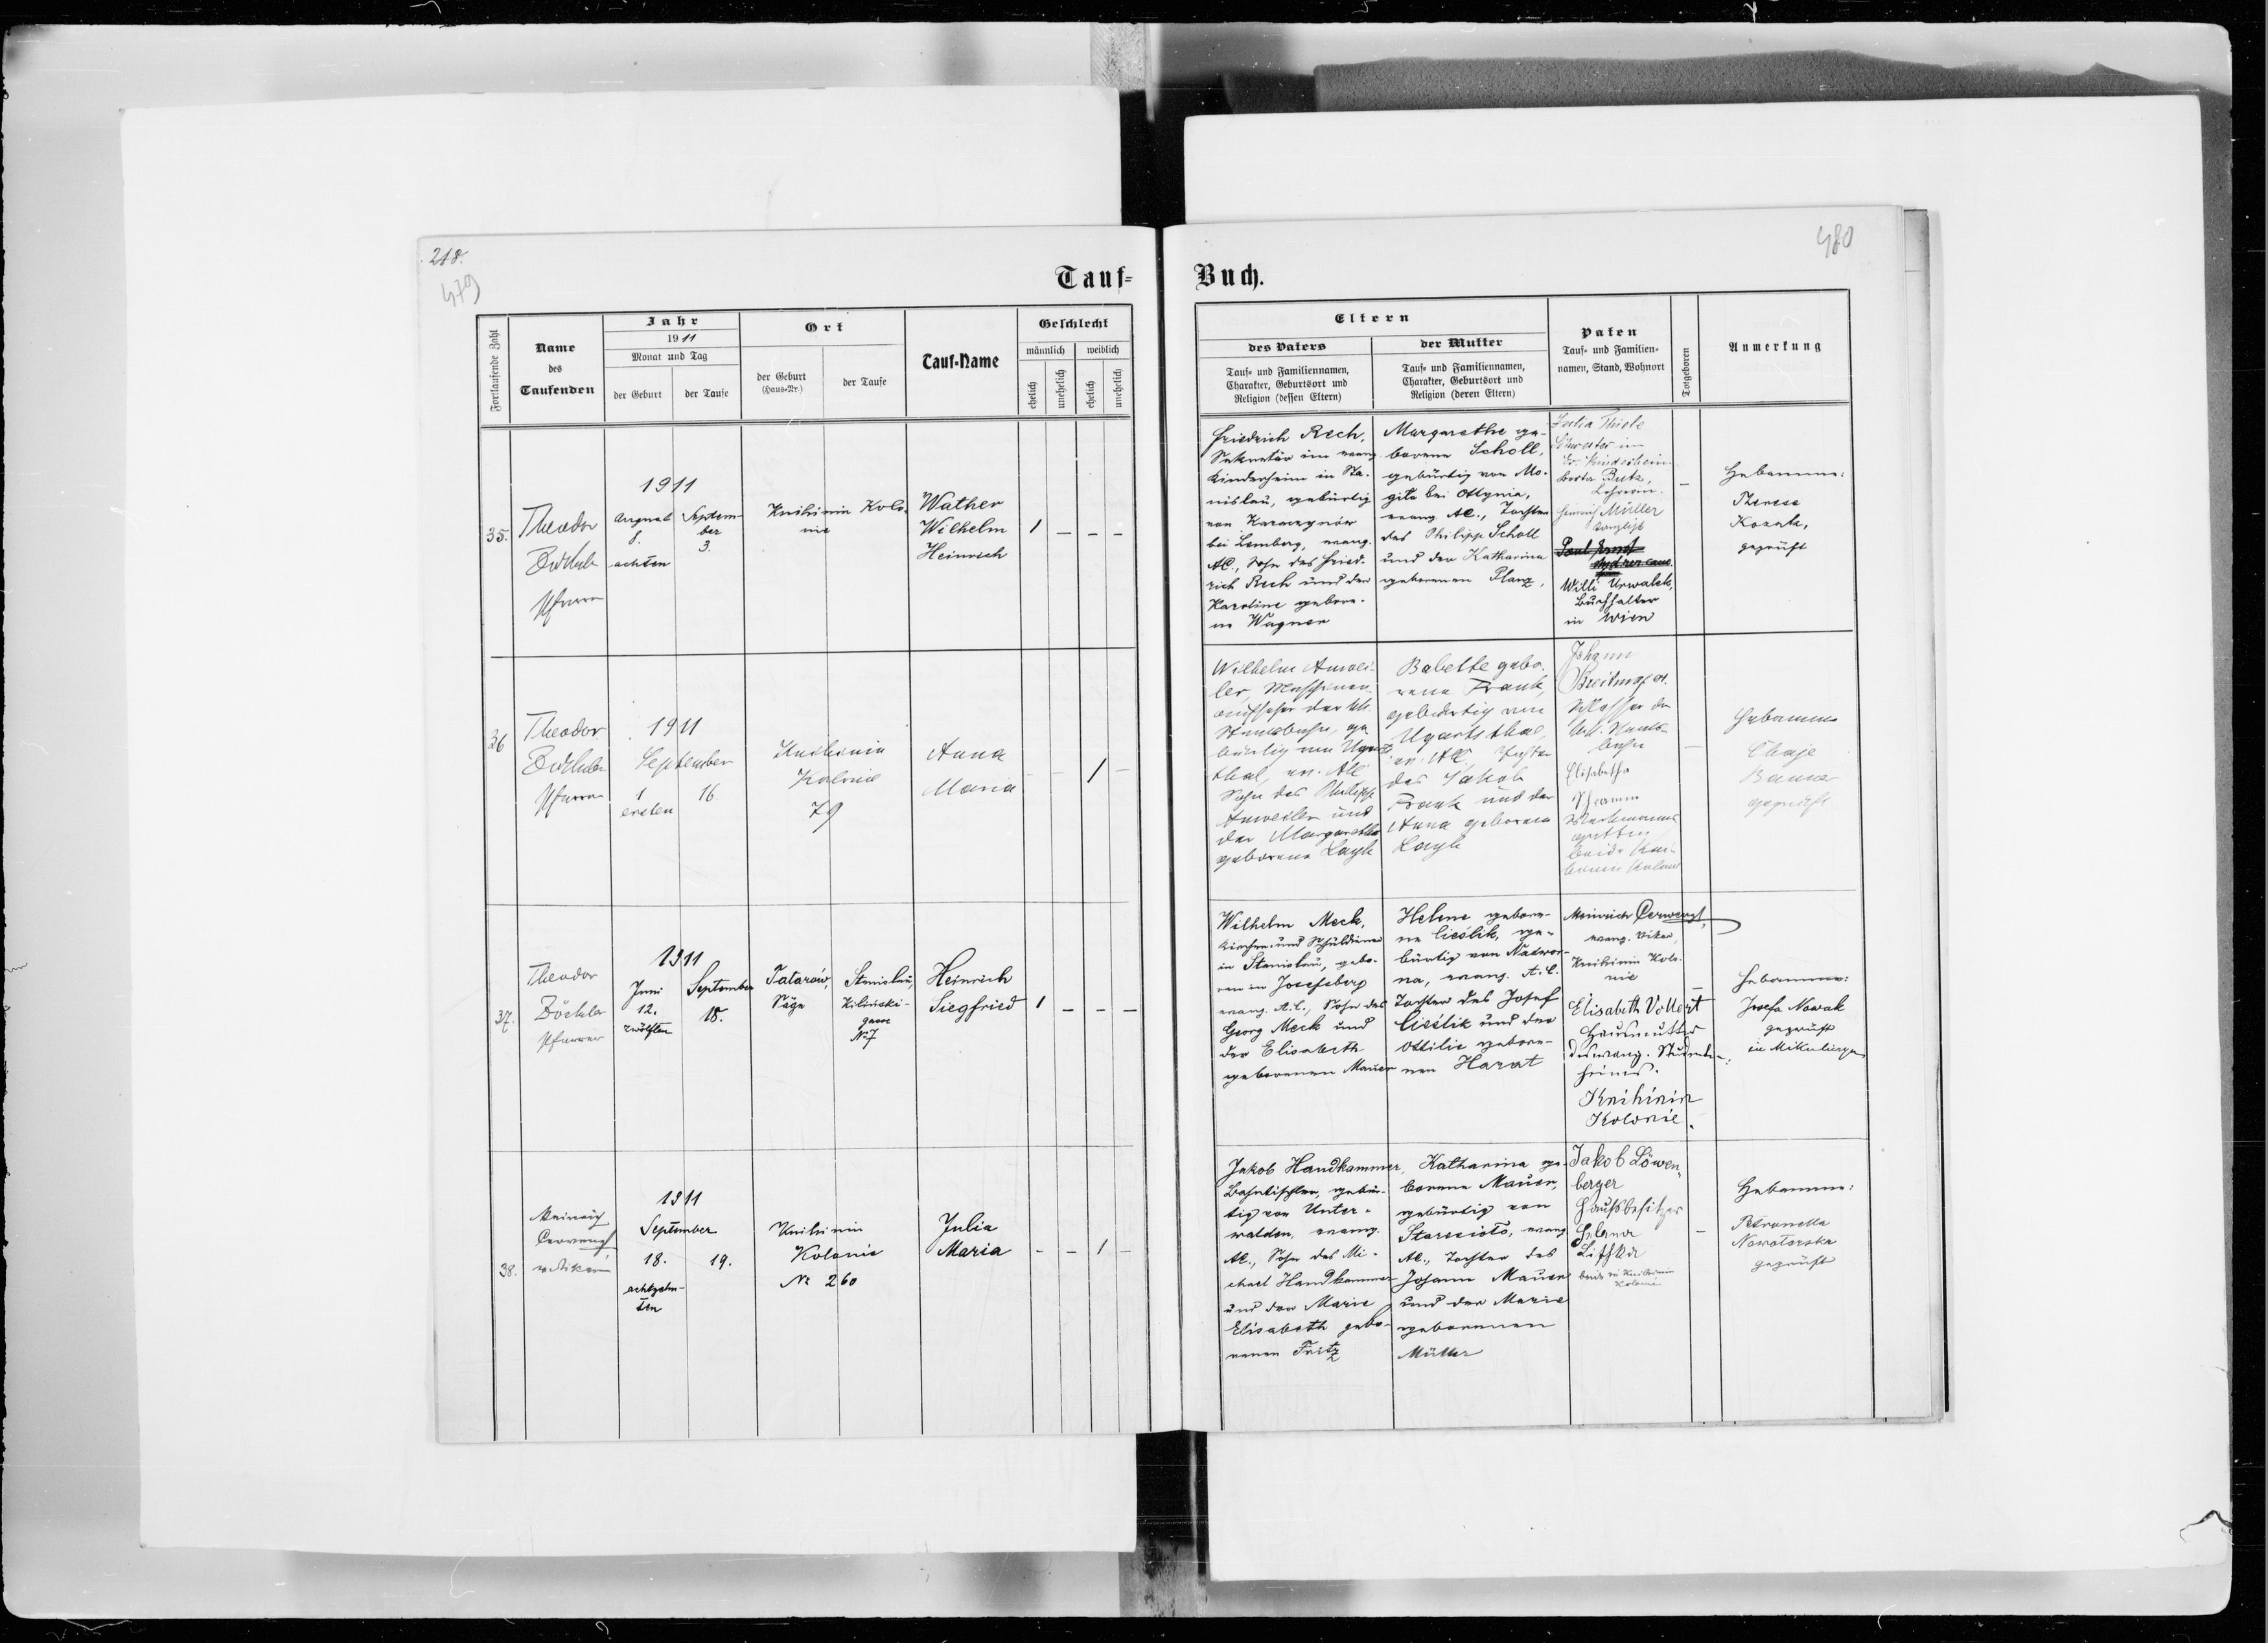 218.
479
480
Tauf-
Buch.
Fortlaufende Zahl
Name
des
Taufenden
Jahr
1911
Monat und Tag
der Geburt
der Taufe
Ort
der Geburt
(Haus-Nr.)
der Taufe
Tauf-Name
Geschlecht
männlich
weiblich
ehelich
unehelich
ehelich
unehelich
Eltern
des Vaters
Tauf- und Familiennamen,
Charakter, Geburtsort und
Religion (dessen Eltern)
der Mutter
Tauf- und Familiennamen,
Charakter, Geburtsort und
Religion (deren Eltern)
Paten
Tauf- und Familien-
namen, Stand, Wohnort
Totgeboren
Anmerkung
35.
Theodor
Zöckler
Pfarrer
1911
August
8.
achten
Septem-
ber
3.
Knihinin Kolo-
nie
Wather
Wilhelm
Heinrich
1
–
–
–
Friedrich Rech,
Sekretär im evang.
Kinderheim in Sta-
nislau, gebürtig
von Kaczeynów
bei Lemberg, evang.
AC., Sohn des Fried-
rich Rech und der
Karoline gebore-
ne Wagner
Margarethe ge-
borene Scholl,
gebürtig von Mo-
gila bei Ottynia,
evang. AC., Tochter
des Philipp Scholl
und der Katharina
geborenen Planz,
Julia Thiele
Schwester im
Ev. Kinderheim
Berta Butz,
Lehrerin.
Heinrich Müller
Kanzlist
Paul Ernst
Willi Urwalek,
Buchhalter
in Wien
–
Hebamme:
Therese
Kozak,
geprüft
36
Theodor
Zöckler
Pfarrer
1911
September
1
ersten
16.
Knihinin
Kolonie
79
Anna
Maria
–
–
1
–
Wilhelm Anwei-
ler, Maschinen-
aufseher der kk.
Staatsbahn, ge-
bürtig von Ugarts-
thal, ev. AC
Sohn des Philipp
Anweiler und
der Margaretha
geborene Layh
Babette gebo-
rene Frank,
gebürtig von
Ugartsthal,
ev. AC, Tochter
des Jakob
Frank und der
Anna geborene
Layh
Johann
Breitmayer
Schlosser der
k.k. Staats-
bahn
Elisabetha
Schramm
Werkmanns-
gattin
beide Kni-
hinin Kolonie
–
Hebamme
Chaje
Banner
geprüft
37.
Theodor
Zöckler
Pfarrer
1911
Juni
12.
zwölften
September
18.
Tatarów,
Säge
Stanislau,
Kilinski-
gasse
No 7
Heinrich
Siegfried
1
–
–
–
Wilhelm Meck,
Kirchen- und Schuldiener
in Stanislau, gebo-
ren in Josefsberg
evang. A.C., Sohn des
Georg Meck und
der Elisabeth
geborenen Mauer
Helene gebore-
ne Cieślik, ge-
bürtig von Nadwor-
na, evang. A.C.
Tochter des Josef
Cieślik und der
Ottilie gebore-
nen Harat
evang. Vikar,
Knihinin Kolo-
nie
Elisabeth Vollert
Hausmutter
des evang. Studenten-
heims.
Knihinin
Kolonie.
–
Hebamme:
Josefa Nowak
geprüft
in Mikuliczyn
38.
1911
September
18.
achtzehn-
ten
19.
Knihinin
Kolonie
No 260
Julia
Maria
–
–
1
–
Jakob Handkammer,
Bahntischler, gebür-
tig von Unter-
walden, evang.
AC., Sohn des Mi-
chael Handkammer
und der Marie
Elisabeth gebo-
renen Fritz
Katharina ge-
borene Mauer,
gebürtig von
Staresioło, evang
AC., Tochter des
Johann Mauer
und der Marie
geborenen
Müller
Jakob Löwen-
berger
Hausbesitzer
Helena
Lischka
beide in Knihinin
Kolonie
–
Hebamme:
Petronella
Nowotarska
geprüft